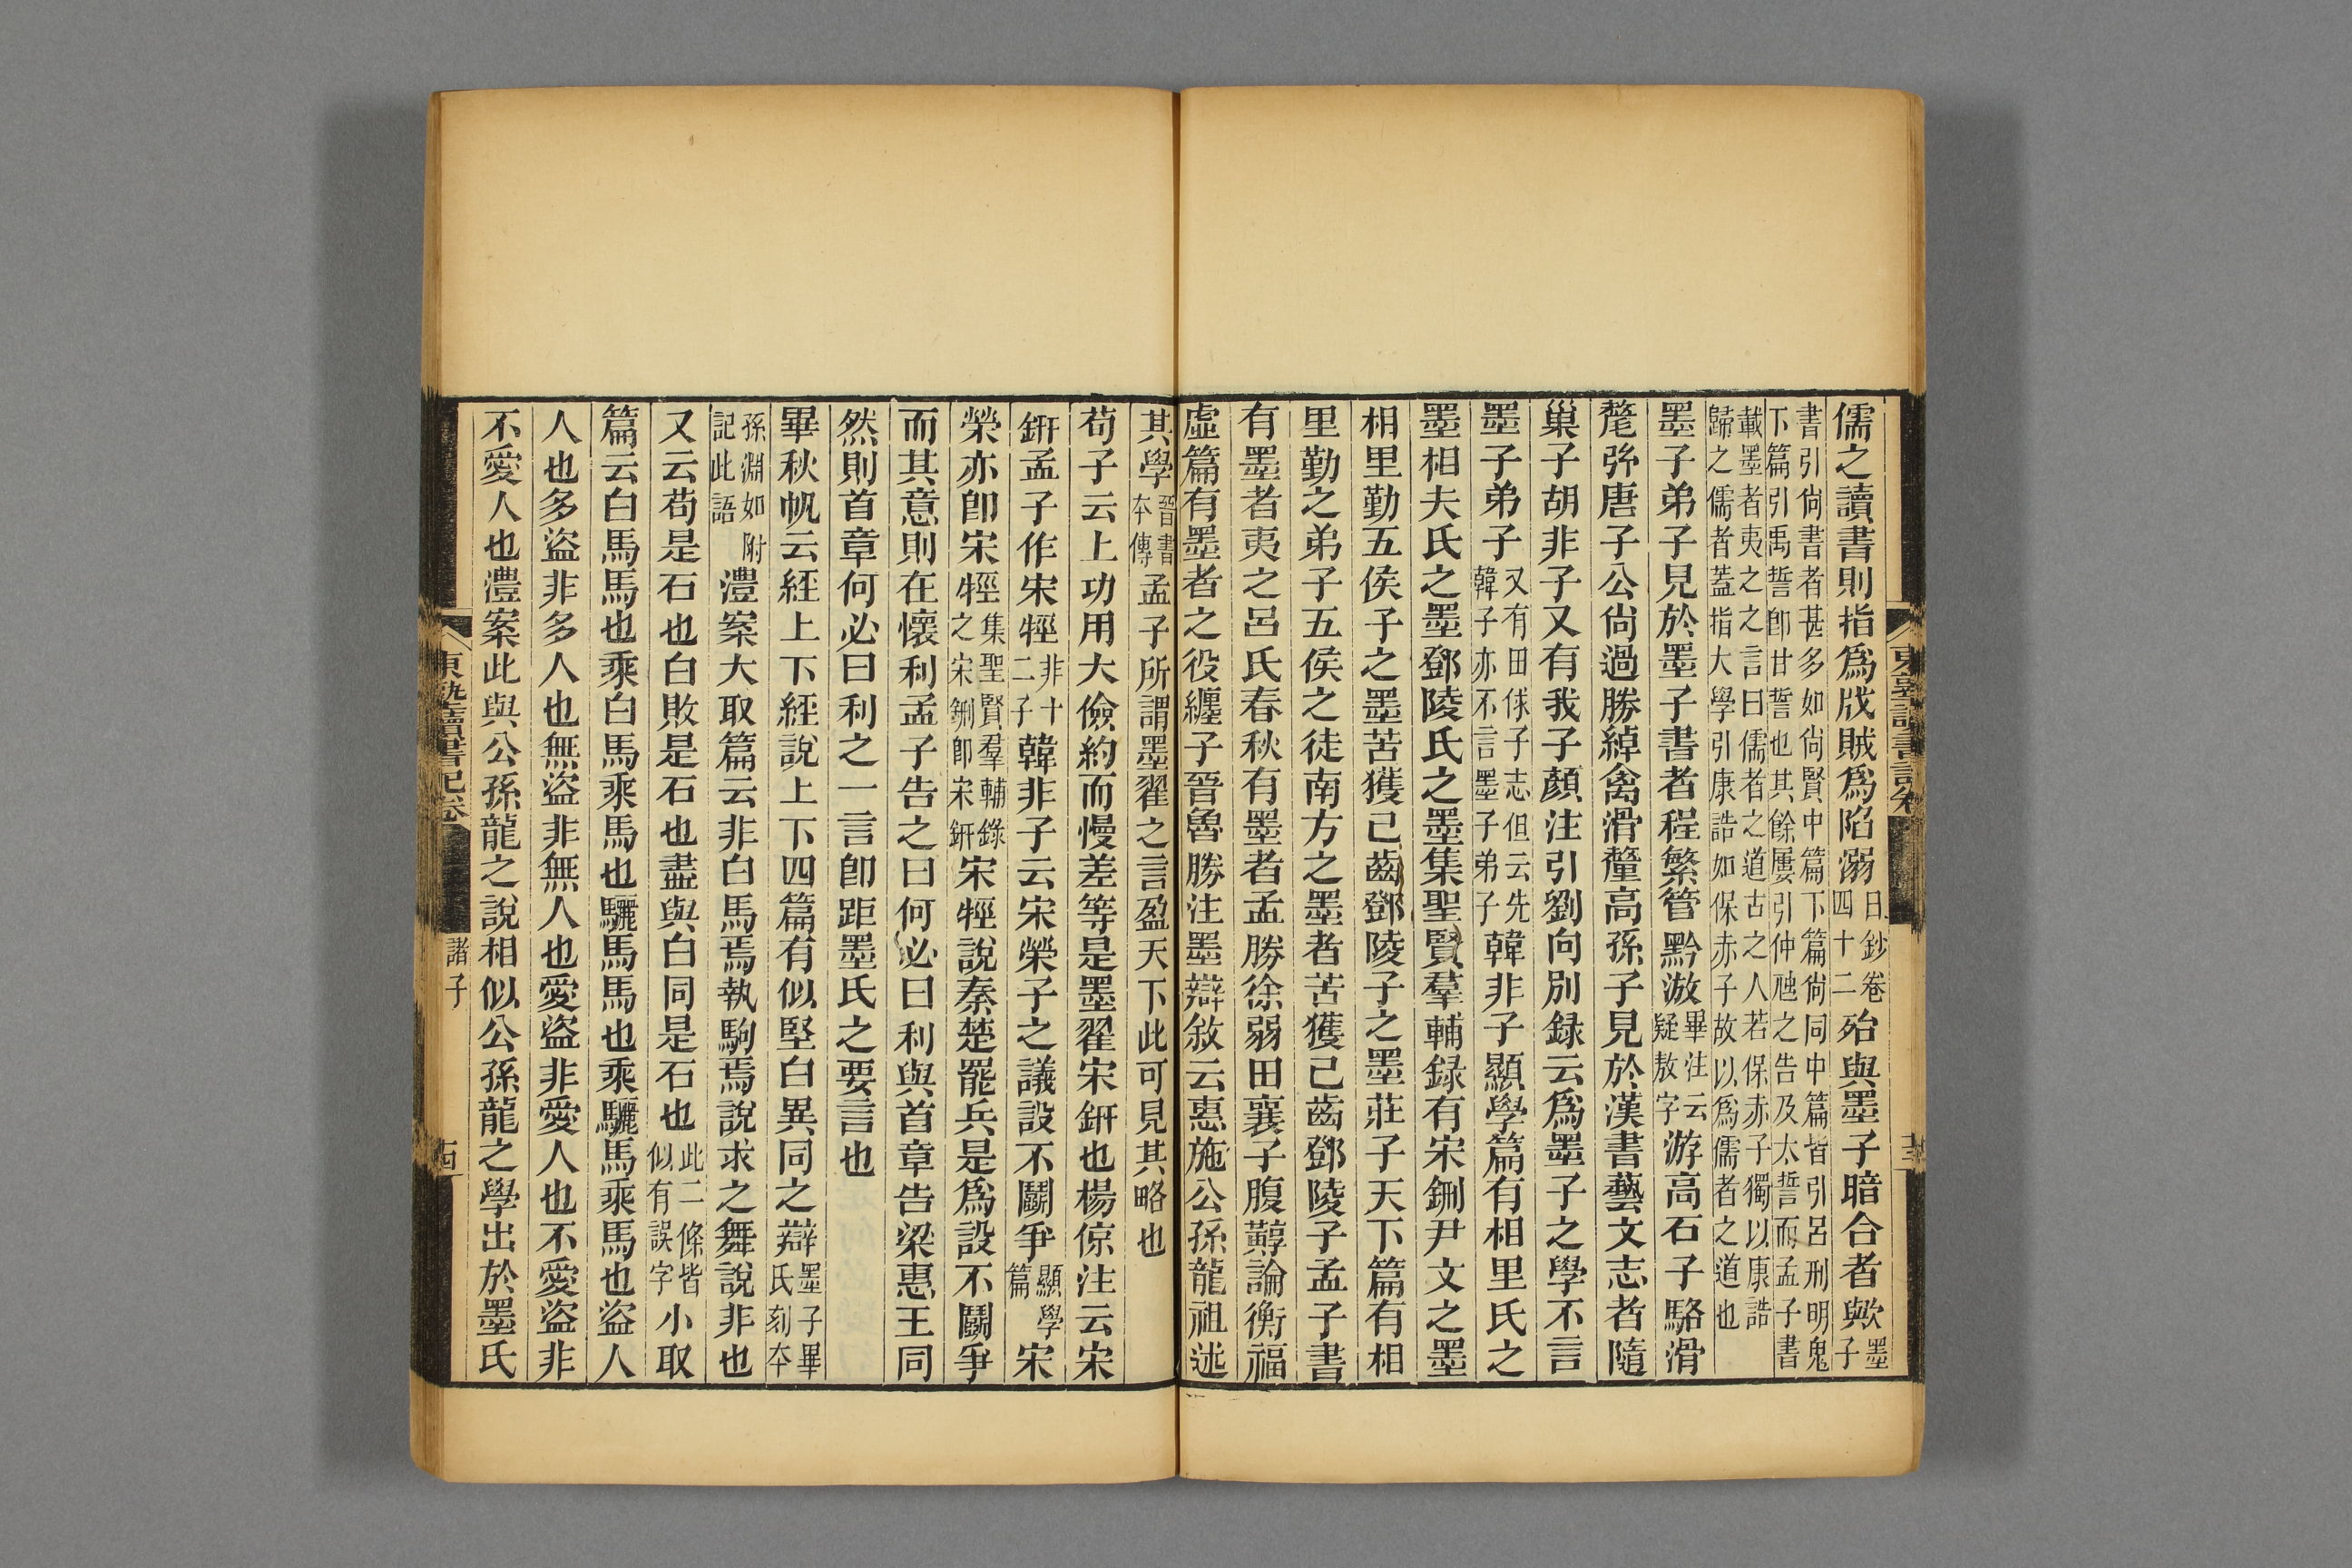 儒之讀書則指爲戕賊爲陷溺日鈔卷四十二殆與墨子暗合者歟墨子
書引尙書者甚多如尙賢中篇下篇尙同中篇皆引呂刑明鬼
下篇引禹誓卽甘誓也其餘屢引仲虺之告及太誓而孟子書
載墨者夷之之言曰儒者之道古之人若保赤子獨以康誥
歸之儒者蓋指大學引康誥如保赤子故以爲儒者之道也
墨子弟子見於墨子書者程繁管黔滶畢注云疑敖字游高石子駱滑
氂弥唐子公尙過勝綽禽滑釐高孫子見於漢書藝文志者隨
巢子胡非子又有我子顏注引劉向別録云爲墨子之學不言
墨子弟子又有田俅子志但云先韓子亦不言墨子弟子韓非子顯學篇有相里氏之
墨相夫氏之墨鄧陵氏之墨集聖賢羣輔録有宋鉶尹文之墨
相里勤五侯子之墨苦獲己齒鄧陵子之墨莊子天下篇有相
里勤之弟子五侯之徒南方之墨者苦獲己齒鄧陵子孟子書
有墨者夷之呂氏春秋有墨者孟勝徐弱田襄子腹䵍論衡福
虛篇有墨者之役纏子晉魯勝注墨辯敘云惠施公孫龍祖述
其學晉書本傳孟子所謂墨翟之言盈天下此可見其略也
荀子云上功用大儉約而慢差等是墨翟宋鈃也楊倞注云宋
鈃孟子作宋牼非十二子韓非子云宋榮子之議設不鬭爭顯學篇宋
榮亦卽宋牼集聖賢羣輔錄之宋鉶卽宋鈃宋牼說秦楚罷兵是爲設不鬭爭
而其意則在懷利孟子告之曰何必曰利與首章告梁惠王同
然則首章何必曰利之一言卽距墨氏之要言也
畢秋帆云經上下經說上下四篇有似堅白異同之辯墨子畢氏刻本
孫淵如附記此語澧案大取篇云非白馬焉執駒焉說求之舞說非也
又云苟是石也白敗是石也盡與白同是石也此二條皆似有誤字小取
篇云白馬馬也乘白馬乘馬也驪馬馬也乘驪馬乘馬也盜人
人也多盜非多人也無盜非無人也愛盜非愛人也不愛盜非
不愛人也澧案此與公孫龍之說相似公孫龍之學出於墨氏
東塾讀書記卷
諸子
古